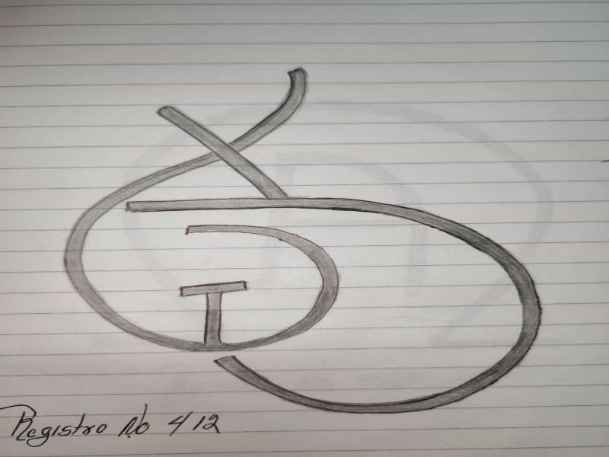 Registro No 412